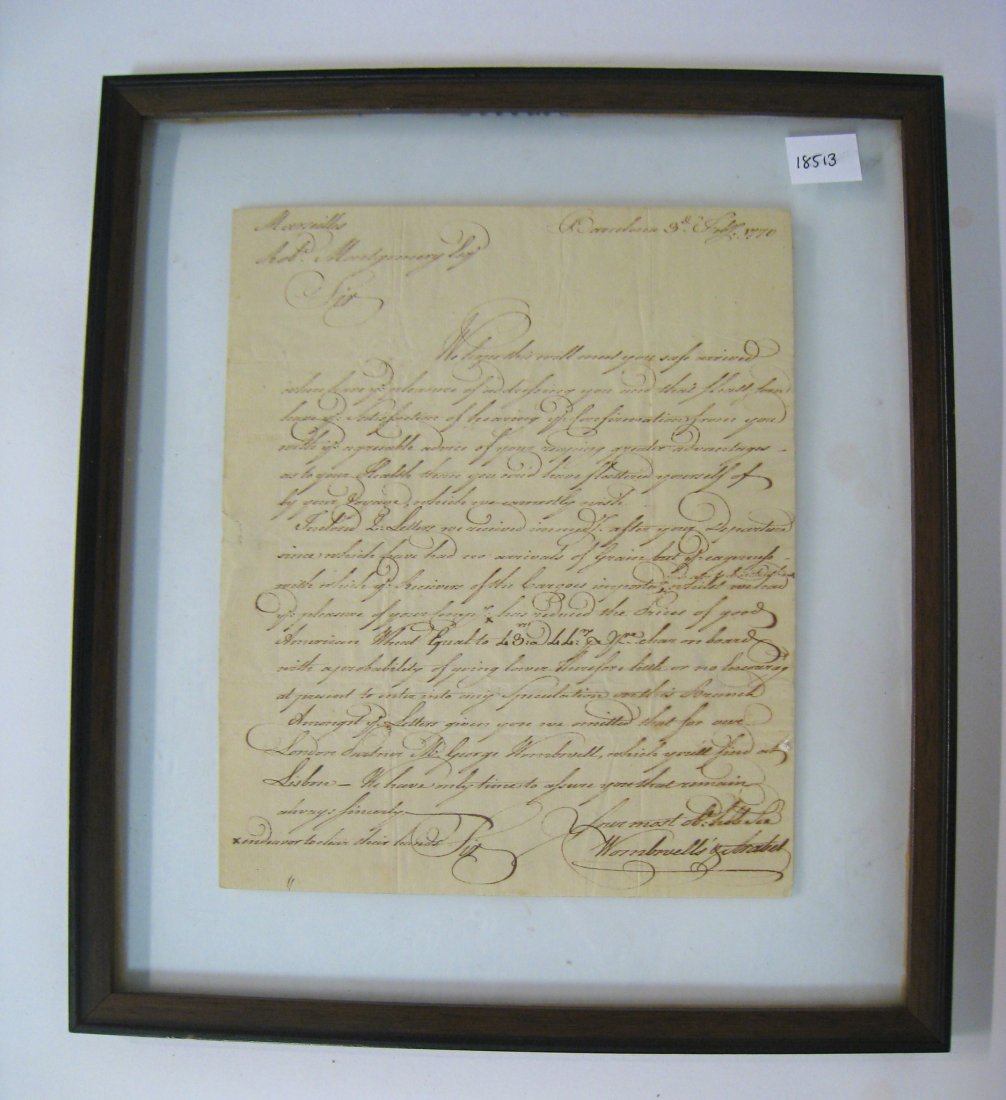 18513
Marseilles Barcelona 3d. Feby. 1770
Robt. Montgomery Esqr
Sir
We hope this will meet you safe arrived
when have ye. pleasure of addressing you and that shall soon
have ye. satisfaction of hearing ye. Confirmation from you
with ye. agreeable advice of your reaping greater advantages
as to your Health than you cou'd have flattered yourself of
by your Voyage, which we earnestly wish
Inclosed Letters we received after your departure
since which have had no arrivals of Grain but ye. eagerness
with which ye. Receivers of the Cargoes whilst we had
ye. pleasure of your x has reduced the Prices of good
American Wheat Equal to on board
with a probability of going lower therefore little or no
at present to enter into any Speculation on this Branch
Amongst ye. Letters given you we omitted that for our
London Partner Mr. George Wombwell, which you'll find at
Lisbon – We have only time to assure you that remain
always sincerely
Sir Your most
x endeavor to clear their hands Wombwells &